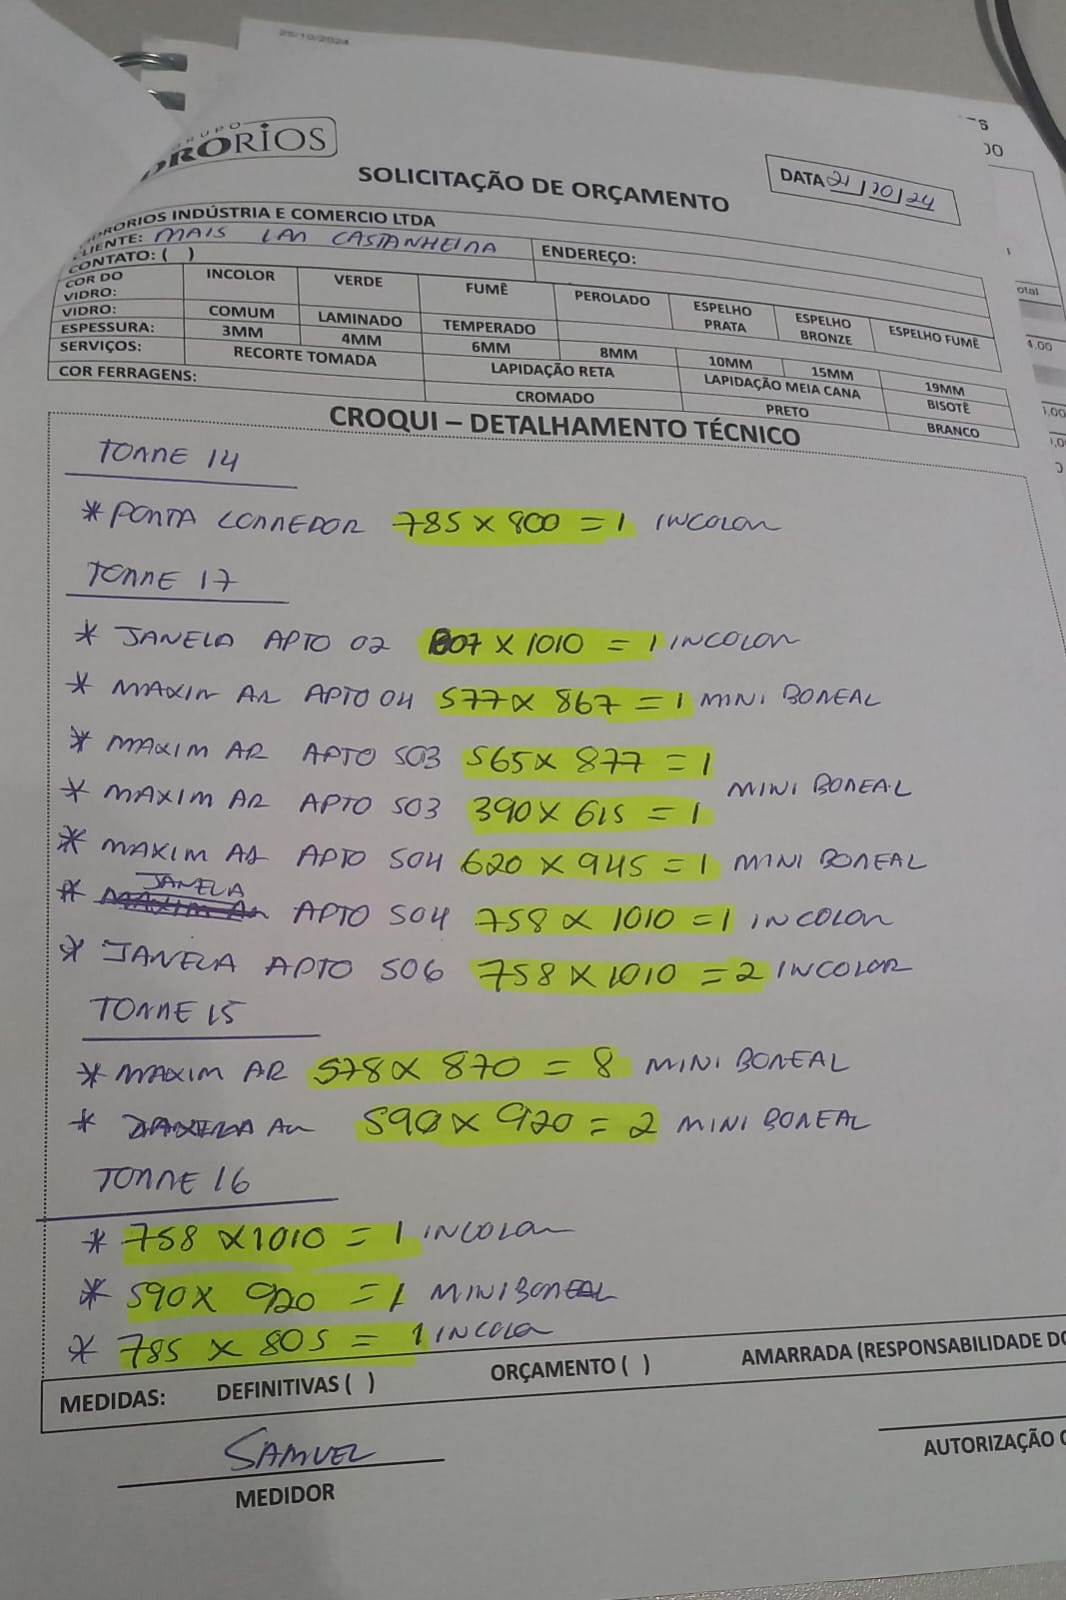 25/10/2024
GRUPO
RORIOS
SOLICITAÇÃO DE ORÇAMENTO
DATA 21/10/24
RORIOS INDÚSTRIA E COMERCIO LTDA
CLIENTE: MAIS LAR CASTANHEIRA ENDEREÇO:
CONTATO: ( )
COR DO VIDRO: INCOLOR VERDE FUMÊ PEROLADO ESPELHO PRATA ESPELHO BRONZE ESPELHO FUMÊ
VIDRO: COMUM LAMINADO TEMPERADO
ESPESSURA: 3MM 4MM 6MM 8MM 10MM 15MM 19MM
SERVIÇOS: RECORTE TOMADA LAPIDAÇÃO RETA LAPIDAÇÃO MEIA CANA BISOTÊ
COR FERRAGENS: CROMADO PRETO BRANCO
CROQUI – DETALHAMENTO TÉCNICO
TORRE 14
* PORTA CORREDOR 785 X 800 = 1 INCOLOR
TORRE 17
* JANELA APTO 02 807 X 1010 = 1 INCOLOR
* MAXIM AR APTO 04 577 X 867 = 1 MINI BOREAL
* MAXIM AR APTO 503 565 X 877 = 1
MINI BOREAL
* MAXIM AR APTO 503 390 X 615 = 1
* MAXIM AR APTO 504 620 X 945 = 1 MINI BOREAL
* JANELA APTO 504 758 X 1010 = 1 INCOLOR
* JANELA APTO 506 758 X 1010 = 2 INCOLOR
TORRE 15
* MAXIM AR 578 X 870 = 8 MINI BOREAL
* AR 590 X 920 = 2 MINI BOREAL
TORRE 16
* 758 X 1010 = 1 INCOLOR
* 590 X 920 = 1 MINI BOREAL
* 785 X 805 = 1 INCOLOR
MEDIDAS: DEFINITIVAS ( ) ORÇAMENTO ( ) AMARRADA (RESPONSABILIDADE DO
SAMUEL
MEDIDOR AUTORIZAÇÃO